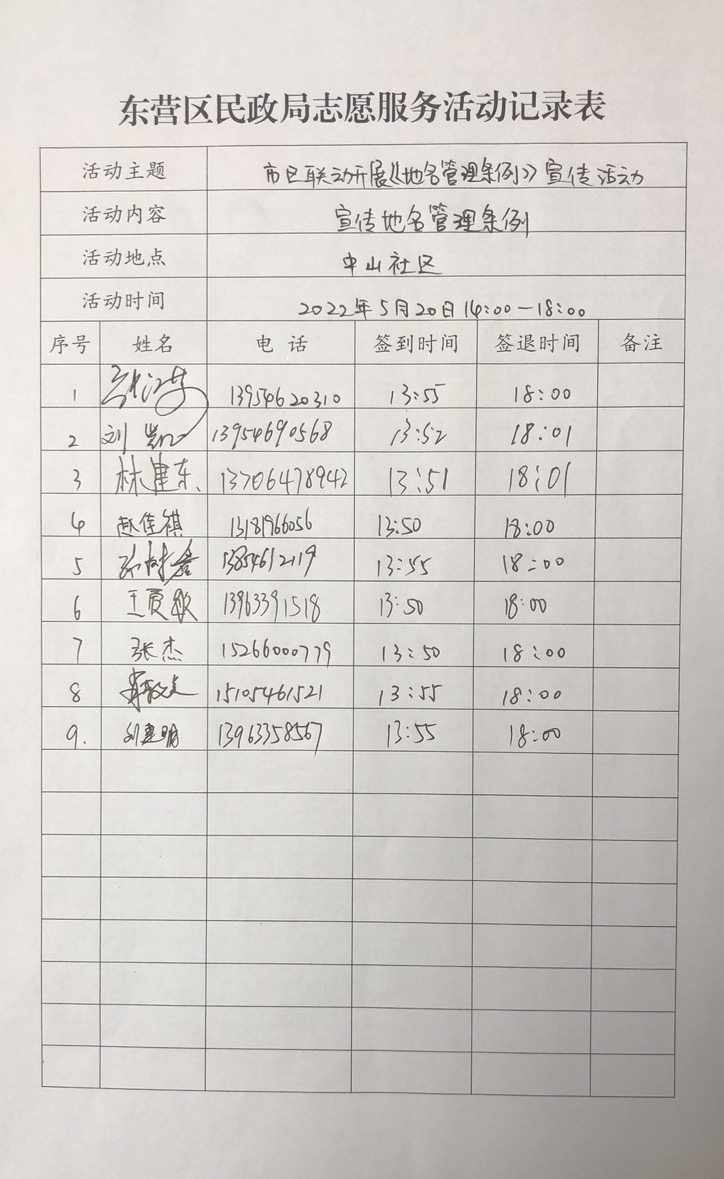 东营区民政局志愿服务活动记录表
活动主题 市区联动开展《地名管理条例》宣传活动
活动内容 宣传地名管理条例
活动地点 中山社区
活动时间 2022年5月20日14:00—18:00
序号 姓名 电话 签到时间 签退时间 备注
1 13954620310 13:55 18:00
2 刘凯 13954690568 13:52 18:01
3 林建东、 13706478942 13:51 18:01
4 赵佳祺 13181966056 13:50 18:00
5 13854612119 13:55 18:00
6 王夏敏 13963391518 13:50 18:00
7 张杰 15266000779 13:50 18:00
8 15105461521 13:55 18:00
9. 刘建明 13963358567 13:55 18:00